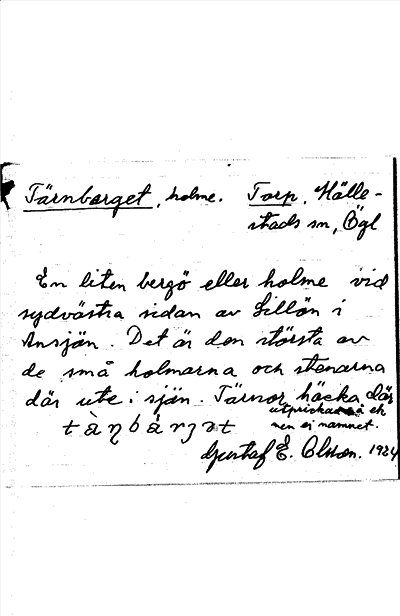 Tärnberget, holme. Torp, Hälle-
stads sn, Ögl
En liten bergö eller holme vid
sydvästra sidan av Lillön i
Ansjön. Det är den största av
de små holmarna och stenarna
där ute i sjön. Tärnor häcka där
utprickas å ek
men ej namnet.
Gustaf E. Olsson. 1924